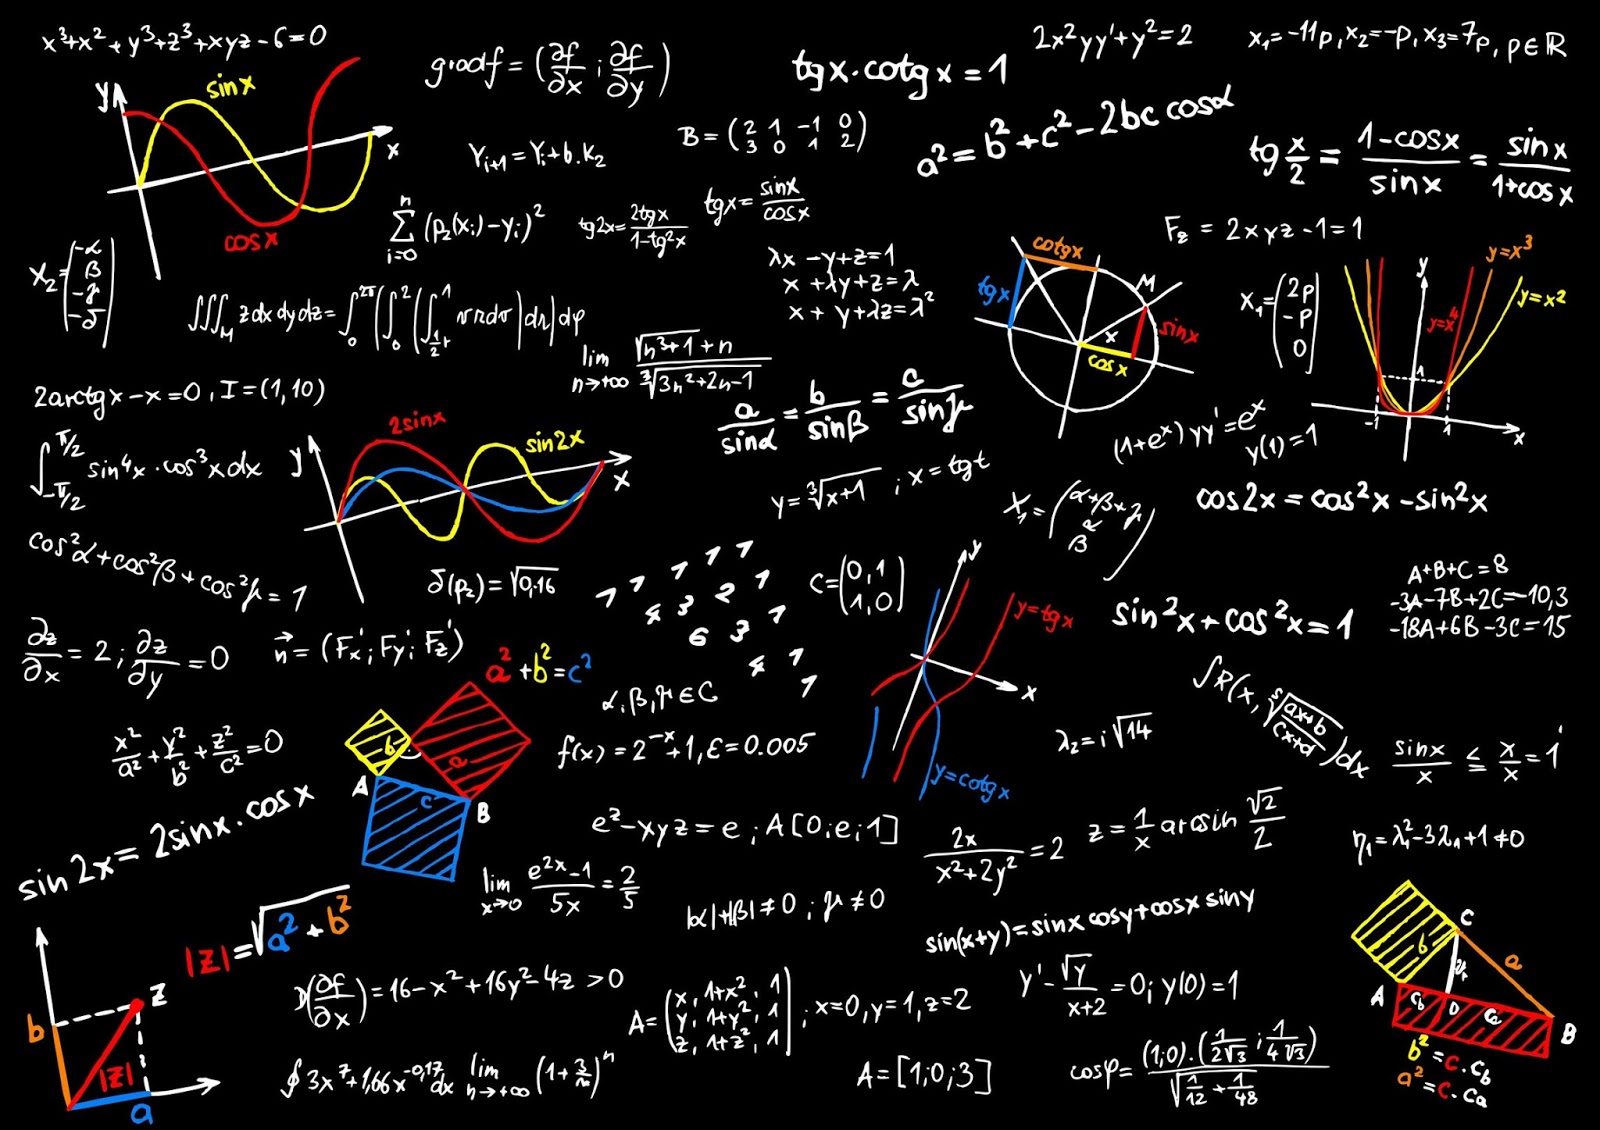 x³+x²+y³+z³+xyz-6=0
y
sinx
x
cosx
gradf = (∂f/∂x ; ∂f/∂y)
tgx·cotgx = 1
2x²yy'+y²=2
x₁=-11p, x₂=-p, x₃=7p, p∈ℝ
Y_{i+1} = Y_i + b·K₂
B = (2 1 -1 0
3 0 1 2)
a² = b²+c²-2bc cosα
tg x/2 = (1-cosx)/sinx = sinx/(1+cosx)
∑_{i=0}^{n} (p₂(x_i)-y_i)²
tg2x = 2tgx/(1-tg²x)
tgx = sinx/cosx
F_z = 2xyz-1=1
X₂ = (-α
β
-γ
-δ)
λx - y + z = 1
x + λy + z = λ
x + y + λz = λ²
cotgx
tgx
M
x
sinx
cosx
X₁ = (2p
-p
0)
y
y=x³
y=x²
y=x⁴
1
-1
1
x
lim n→+∞ (√(n³+1)+n)/∛(3n²+2n-1)
2arctgx-x=0, I=(1,10)
∫_{-π/2}^{π/2} sin⁴x·cos³x dx
y
2sinx
sin2x
x
a/sinα = b/sinβ = c/sinγ
y = ∛(x+1) ; x = tgt
(1+eˣ)yy' = eˣ
y(1)=1
X₁ = (α+β+γ
α
β)
cos2x = cos²x-sin²x
cos²α+cos²β+cos²γ=1
δ(p₂)=√0,16
1 1 1 1 1
4 3 2 1
6 3 1
4 1
1
C = (0,1
1,0)
y
y=tgx
x
y=cotgx
sin²x+cos²x=1
A+B+C=8
-3A-7B+2C=-10,3
-18A+6B-3C=15
∂z/∂x = 2 ; ∂z/∂y = 0
n⃗ = (F'x; F'y; F'z)
a²+b²=c²
b
a
c
A
B
α,β,γ∈C
∫R(x, ⁵√((ax+b)/(cx+d)))dx
x²/a² + y²/b² + z²/c² = 0
f(x)=2⁻ˣ+1, ε=0.005
λ₂=i√14
sinx/x ≤ x/x = 1
sin2x = 2sinx·cosx
e^z-xyz=e ; A[0;e;1]
2x/(x²+2y²) = 2
z = 1/x arcsin √2/2
η₁=λ₁²-3λ₁+1≠0
lim x→0 (e^{2x}-1)/5x = 2/5
|α|+|β|≠0 ; γ≠0
sin(x+y)=sinx cosy+cosx siny
|z|=√(a²+b²)
z
b
|z|
a
D(∂f/∂x)=16-x²+16y²-4z>0
A = (x, 1+x², 1
y, 1+y², 1
z, 1+z², 1) ; x=0, y=1, z=2
y' - √y/(x+2) = 0 ; y(0)=1
C
b
a
A
c_b
D
c_a
B
b²=c·c_b
a²=c·c_a
∮3x⁷+1,66x^{-0,17}dx
lim n→+∞ (1+3/n)ⁿ
A=[1;0;3]
cosφ = (1;0)·(1/(2√3) ; 1/(4√3))/√(1/12+1/48)